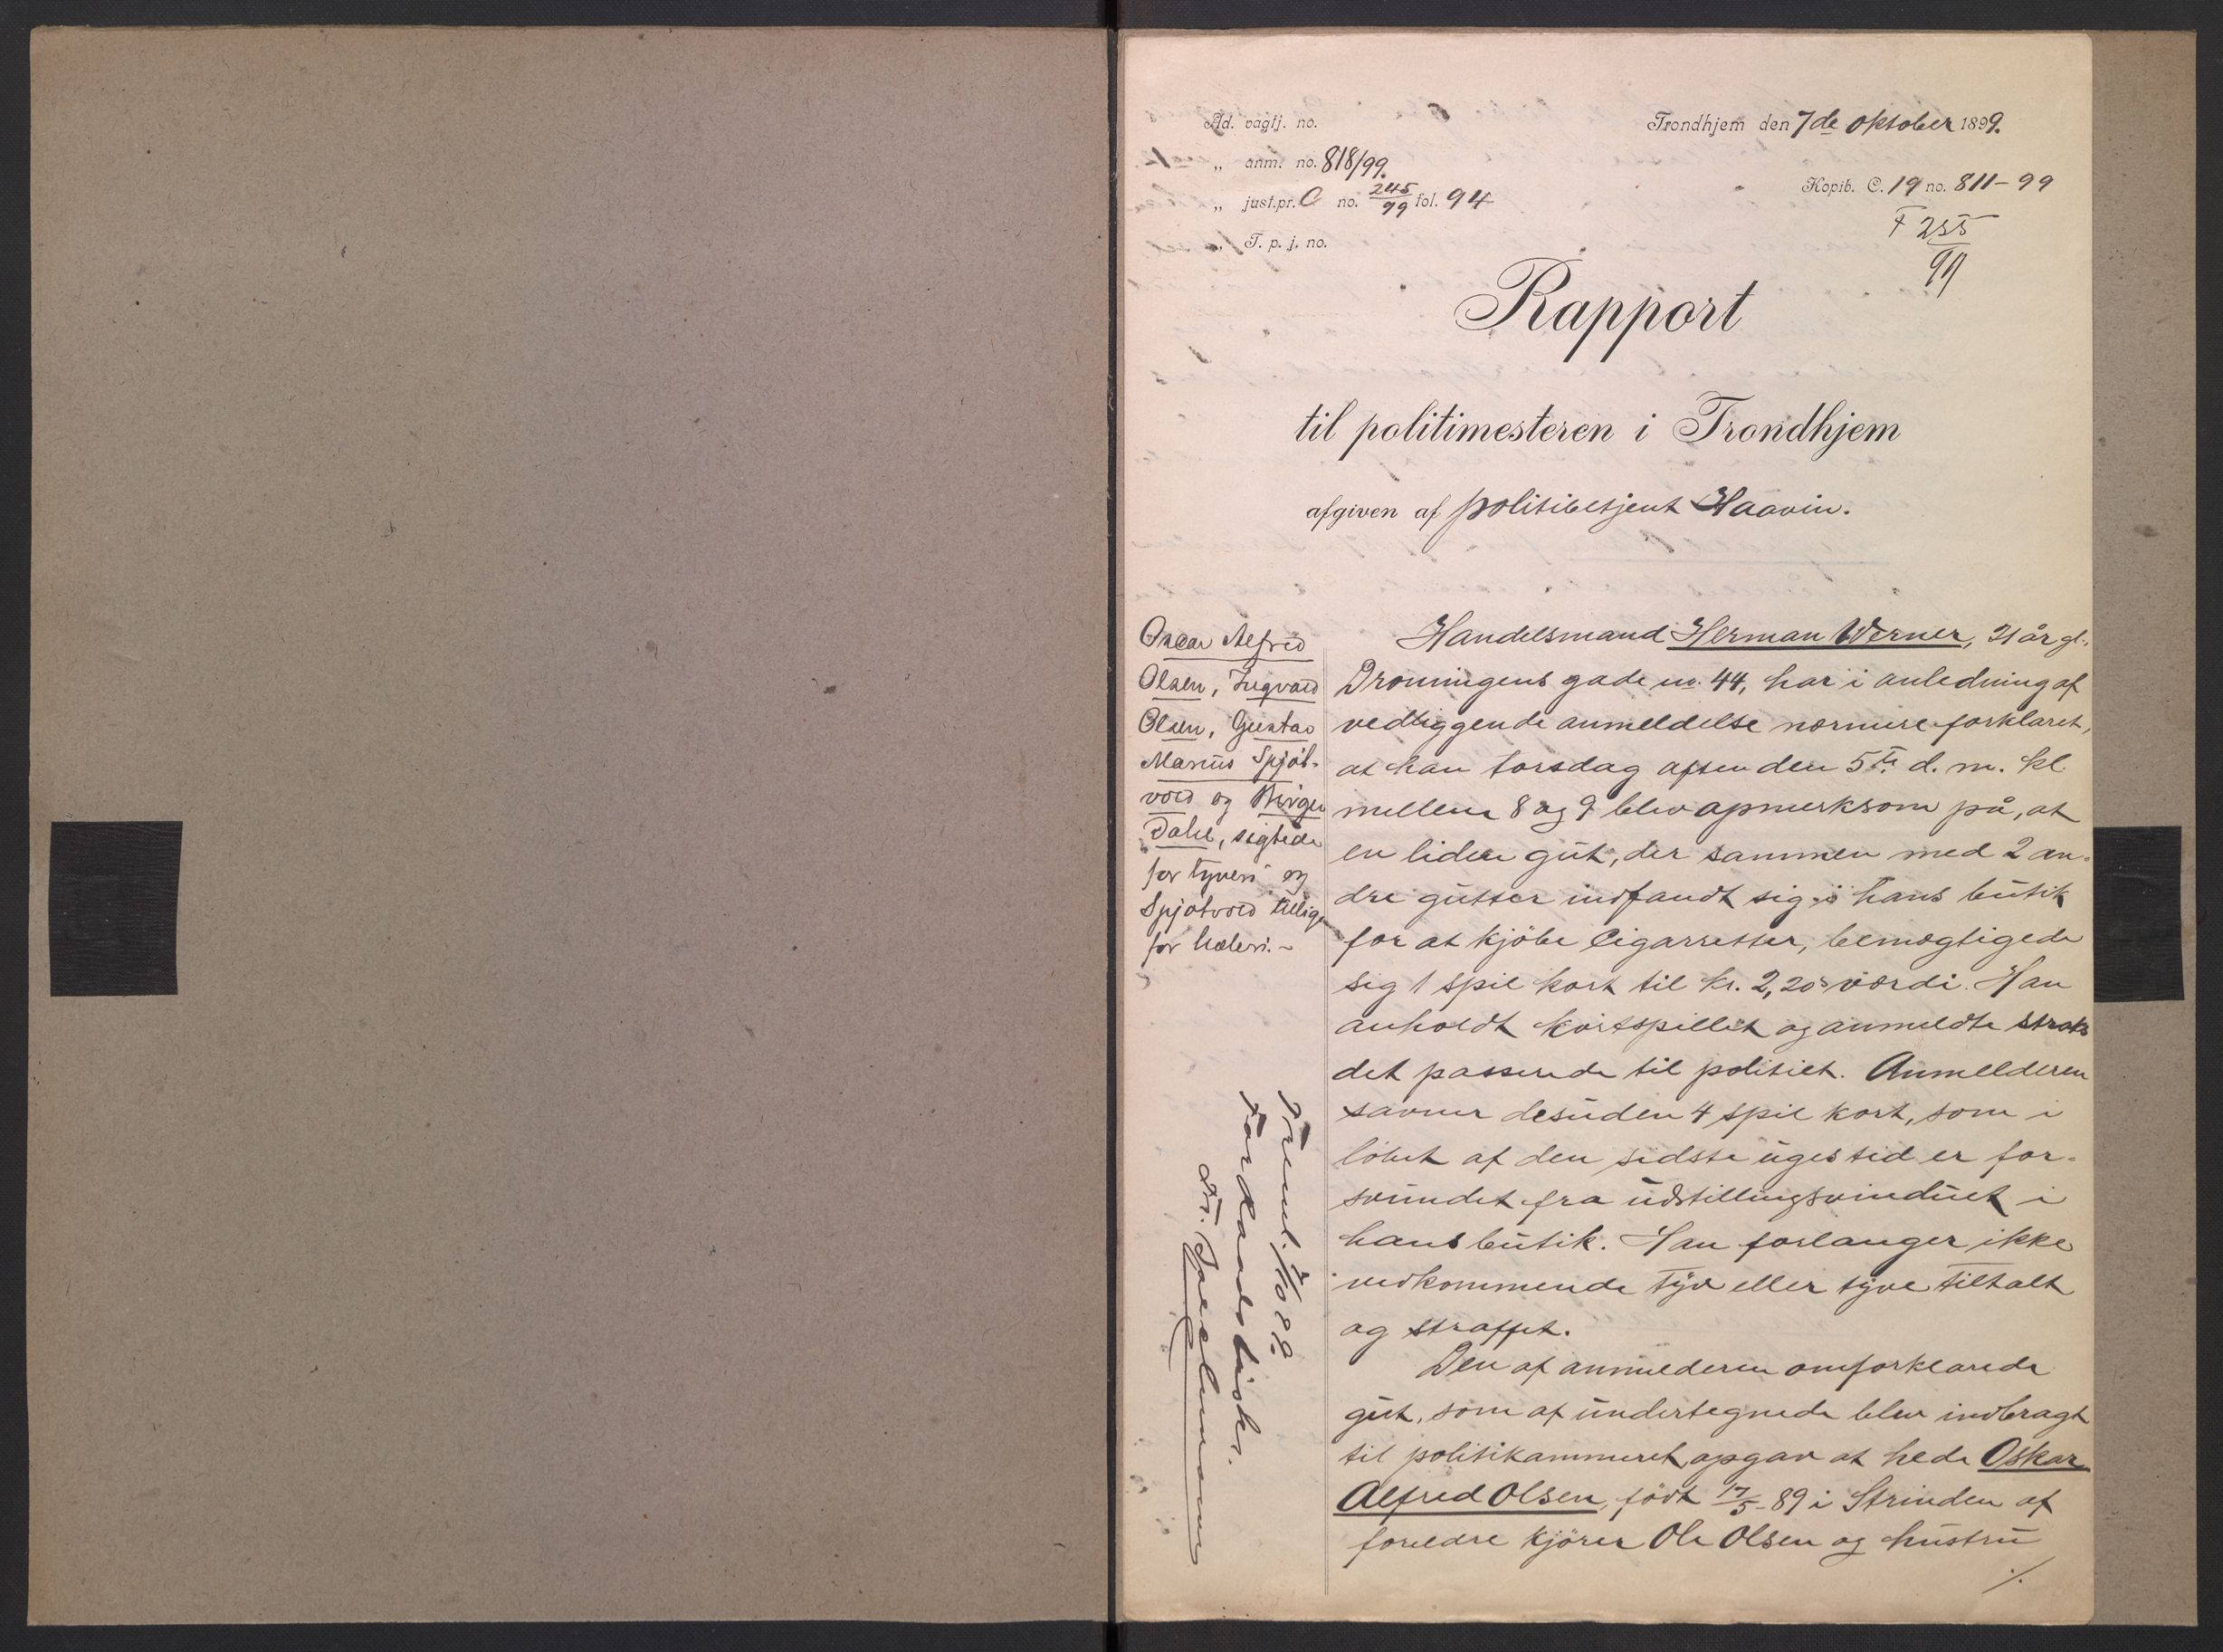 Ad. vagtj. no.
„ anm. no. 818/99.
„ just.pr. C no. 245/99 fol. 94
„ T. p. j. no.
Trondhjem den 7de oktober 1899.
Kopib. C. 19 no. 811-99
F 255/99
Rapport
til politimesteren i Trondhjem
afgiven af politibetjent Haavin.
Oscar Alfred
Olsen, Ingvald
Olsen, Gustav
Marius Spjøt-
vold og Birger
Dahl, sigtede
for tyveri og
Spjøtvold tillige
for hæleri.-
Handelsmand Herman Werner, 21 år gl.,
Dronningens gade no. 44, har i anledning af
vedliggende anmeldelse nærmere forklaret,
at han torsdag aften den 5te d. m. kl.
mellem 8 og 9 blev opmerksom på, at
en liden gut, der sammen med 2 an-
dre gutter indfandt sig i hans butik
for at kjöbe Cigarretter, bemægtigede
sig 1 spil kort til kr. 2,20s værdi. Han
anholdt kortspillet og anmeldte straks
det passerede til politiet. Anmelderen
savner desuden 4 spil kort, som i
löbet af den sidste uges tid er for-
svundet fra udstillingsvinduet i
hans butik. Han forlanger ikke
vedkommende tyv eller tyve tiltalt
og straffet.
Den af anmelderen omforklarede
gut, som af undertegnede blev indbragt
til politikammeret, opgav at hede Oskar
Alfred Olsen, födt 17/5-89 i Strinden af
forældre kjörer Ole Olsen og hustru
./.